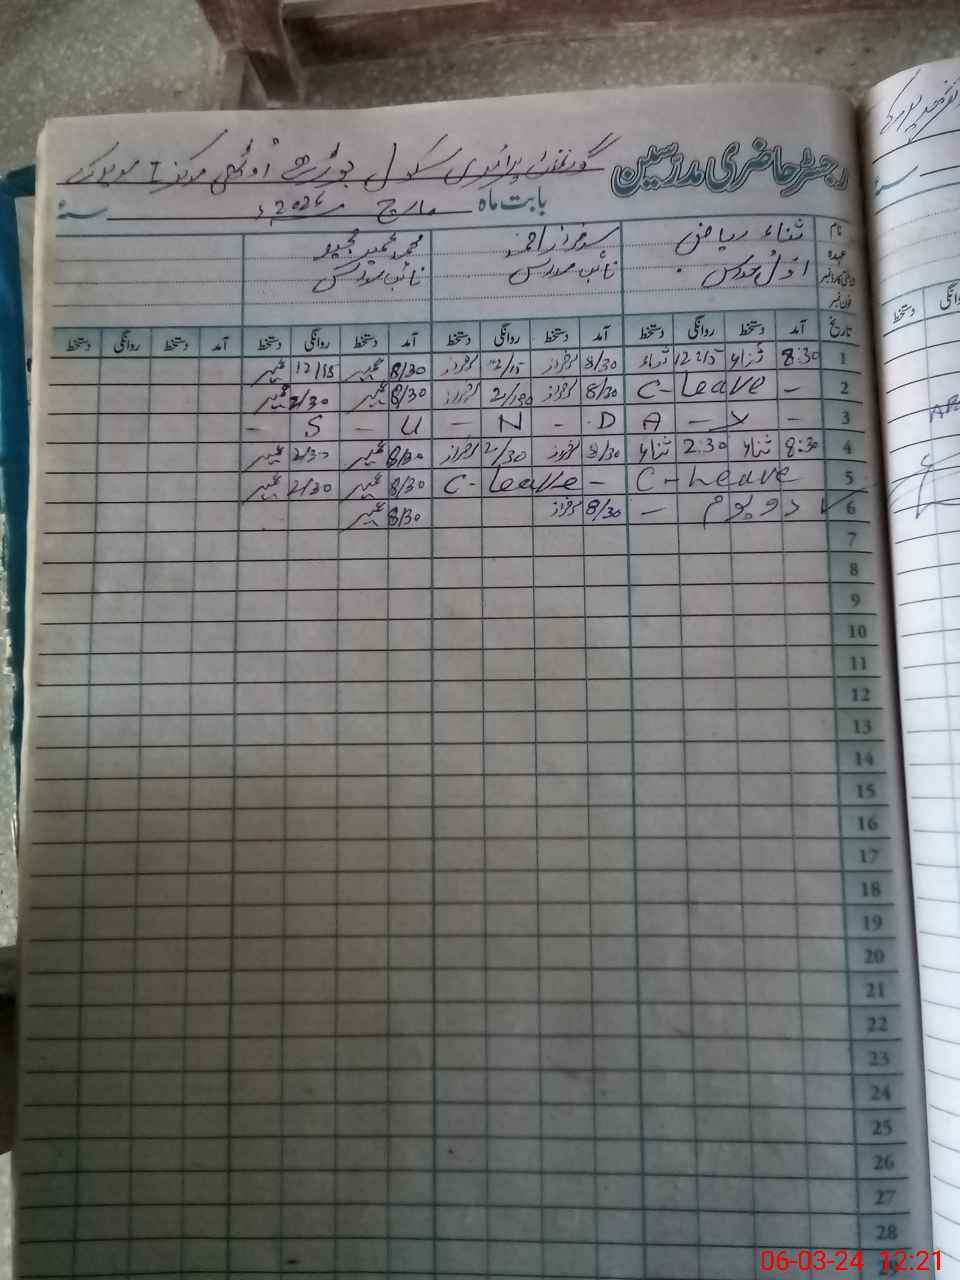 رجسٹر حاضری مدرسین گورنمنٹ پرائمری سکول
بابت ماہ مارچ سنہ
نام ثناء ریاض سرفراز احمد محمد عمیر
عہدہ اول مدرس نائب مدرس نائب مدرس
تاریخ آمد دستخط روانگی دستخط آمد دستخط روانگی دستخط آمد دستخط روانگی دستخط آمد دستخط روانگی دستخط
1 8:30 ثناء 12:15 ثناء 8/30 سرفراز 12/15 سرفراز 8/30 عمیر 12/15 عمیر
2 - C-Leave 8/30 سرفراز سرفراز 8/30 عمیر 2/30 عمیر
3 - S - U - N - D A - Y -
4 8:30 ثناء 2:30 ثناء 8/30 سرفراز 2/30 سرفراز 8/30 عمیر 2/30 عمیر
5 C-Leave C-Leave - 8/30 عمیر 2/30 عمیر
6 8/30 سرفراز 8/30 عمیر
7
8
9
10
11
12
13
14
15
16
17
18
19
20
21
22
23
24
25
26
27
28
06-03-24 12:21